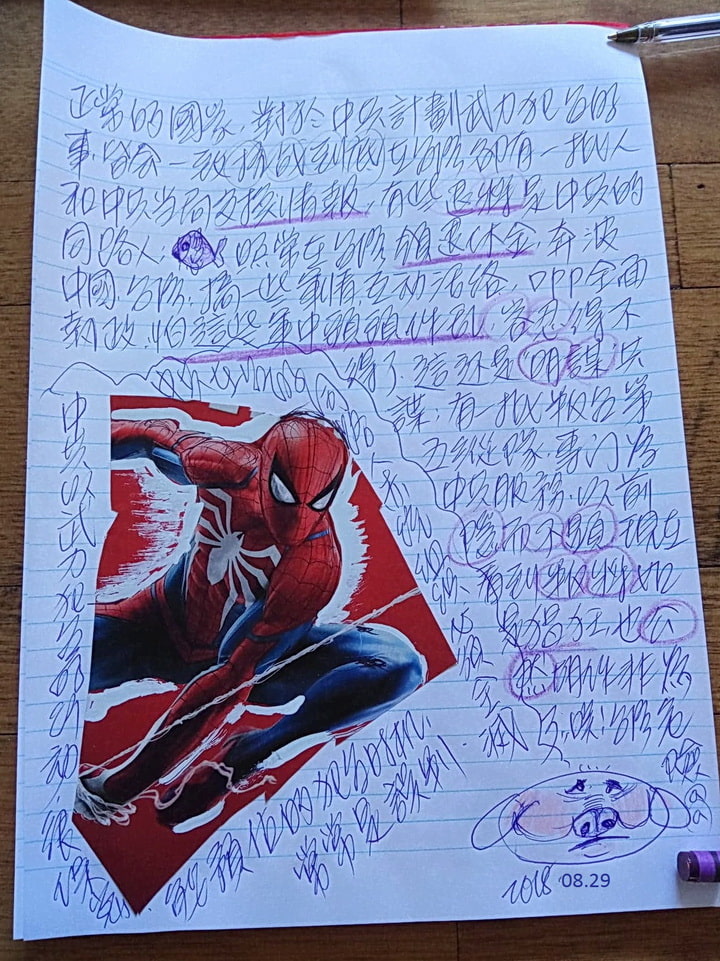 正常的國家,對於中共計劃武力犯台的
事,皆會一致抗戰到底,在台灣,卻有一批人
和中共當局交換情報,有些退將是中共的
同路人,照常在台灣領退休金,奔波
中國,台灣,搞一些事情,互動活絡,DPP全面
執政,怕這些軍中頭頭作亂,容忍得不
得了,這還是明謀共
謀,有一批叛台第
五縱隊,專门為
中共服務,以前
隱而不顯,現在
看到
是猖狂也公
然明作非為
台灣危
險
中共以武力犯台的動
預估的犯台時机,
常常是誤判.
2018 08.29